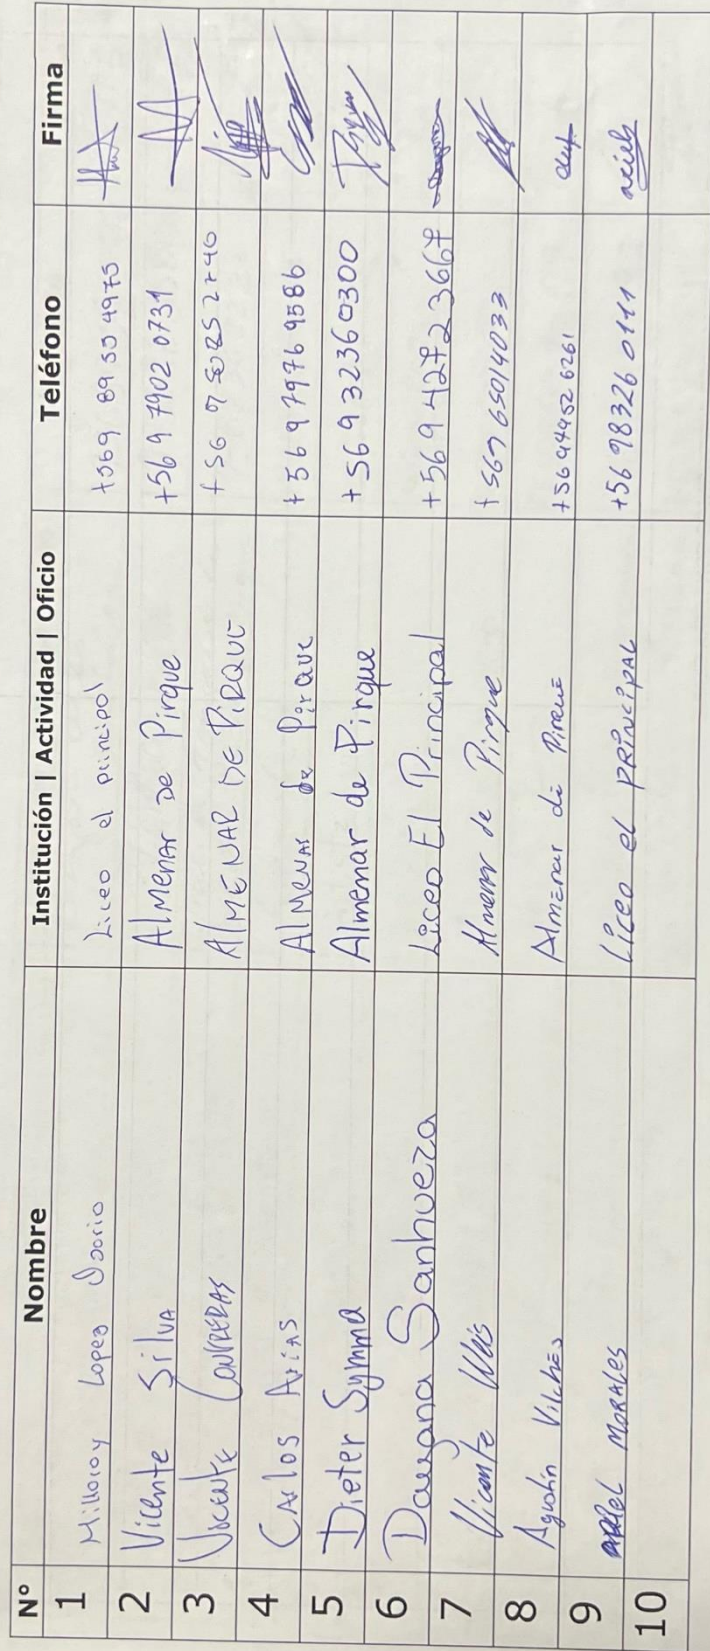 Nº Nombre Institución | Actividad | Oficio Teléfono Firma
1 Millaray Lopez Osorio Liceo el principal +569 89 55 4975
2 Vicente Silva Almenar De Pirque +56 9 7902 0731
3 Vicente Contreras ALMENAR DE PIRQUE +56 9
4 Carlos Arias Almenar de Pirque +56 9 7976 9586
5 Dieter Symma Almenar de Pirque +56 9 32360300
6 Dayana Sanhueza Liceo El Principal +56 9 4272 3667
7 Vicente Almenar de Pirque +569 65014033
8 Agustin Vilches Almenar de Pirque +56 9 4952 6261
9 MORALES Liceo el PRINCIPAL +56 98326 0111
10